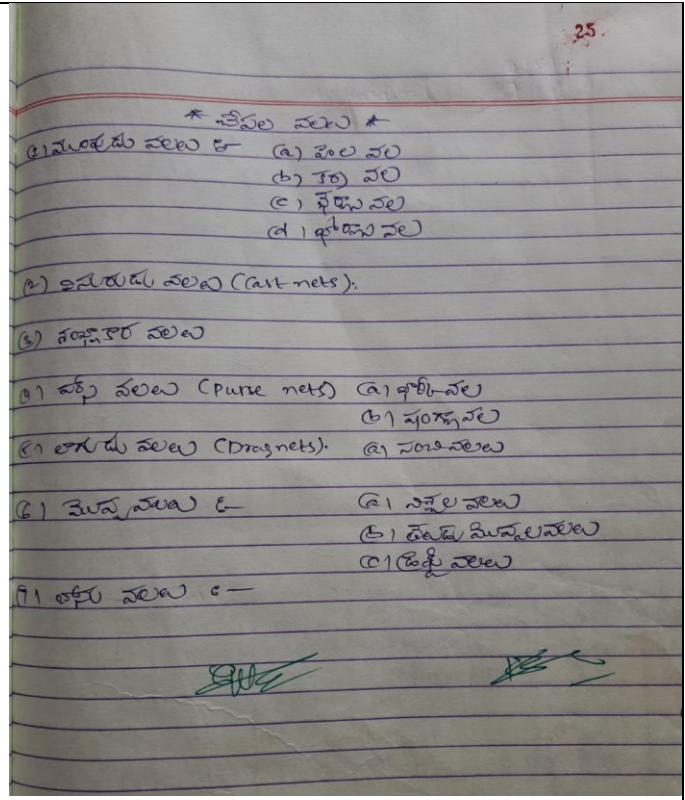 25.
* చేపల వలలు *
(1) ముంపుడు వలలు :- (a) హెల వల
(b) కర్ర వల
(c) వల
(d) వల
(2) విసురుడు వలలు (Cast nets).
(3) శంఖాకార వలలు
(4) పర్స్ వలలు (Purse nets) (a) వల
(b) వల
(5) లాగుడు వలలు (Dragnets). (a) సంచివలలు
(6) మొప్పవలలు :- (a) నిశ్చల వలలు
(b) తేలుడు మొప్పలవలలు
(c) డ్రిఫ్ట్ వలలు
(7) బోను వలలు :-